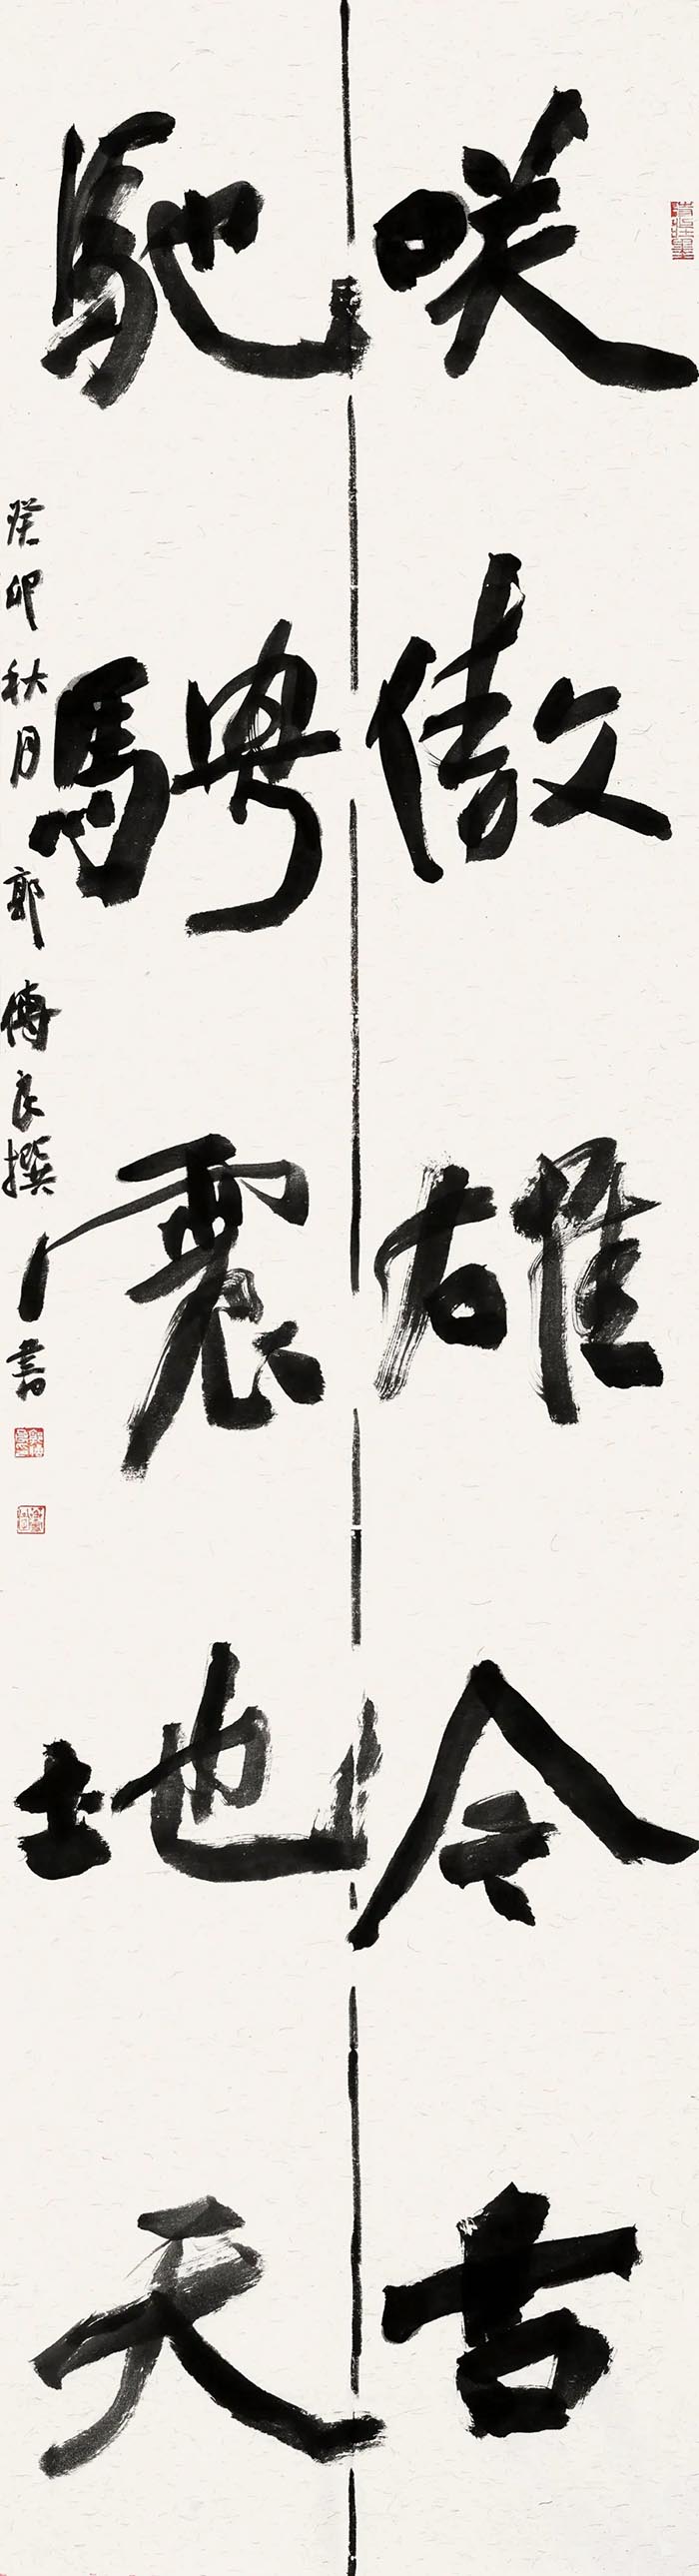 咲傲雄今古
馳騁震地天
癸卯秋月郭傳良撰并書